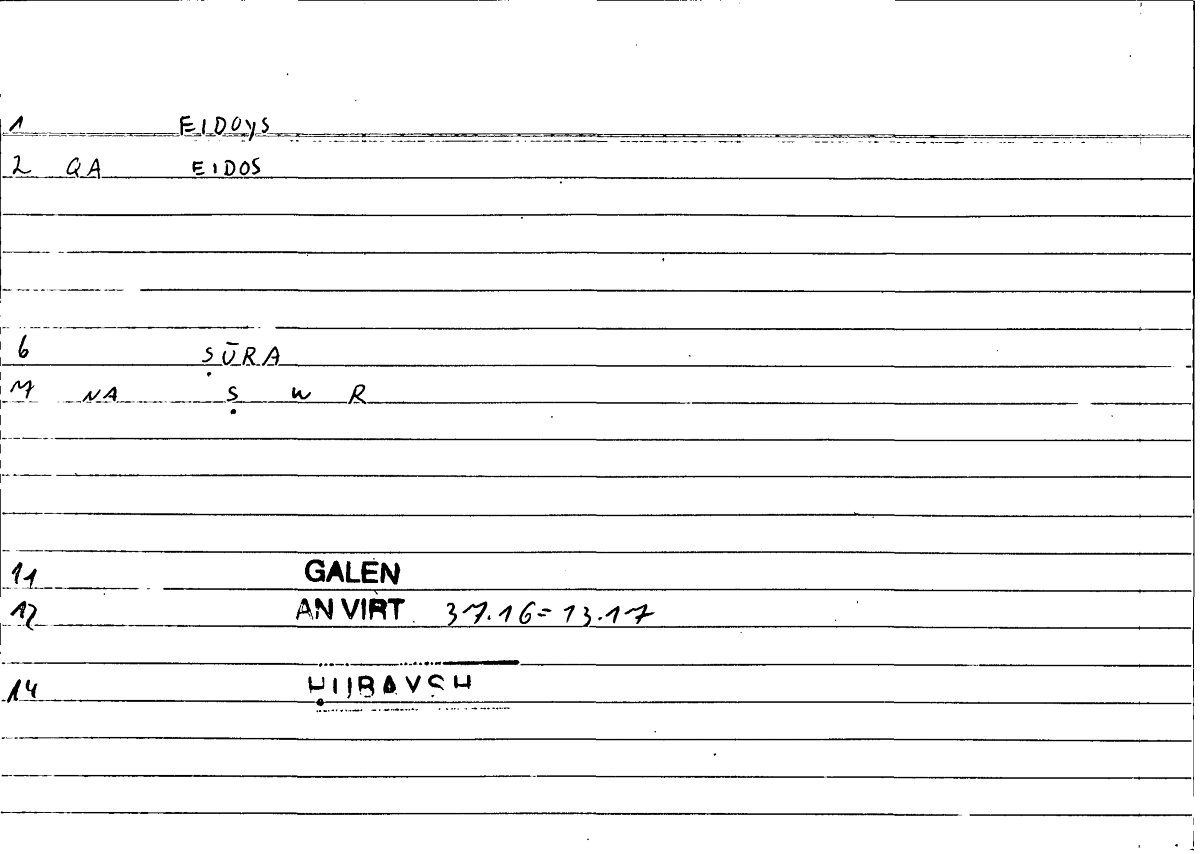 1 EIDOyS
2 QA EIDOS
6 ṢŪRA
7 NA Ṣ W R
11 GALEN
12 AN VIRT 37.16=13.17
14 ḤUBAYSH